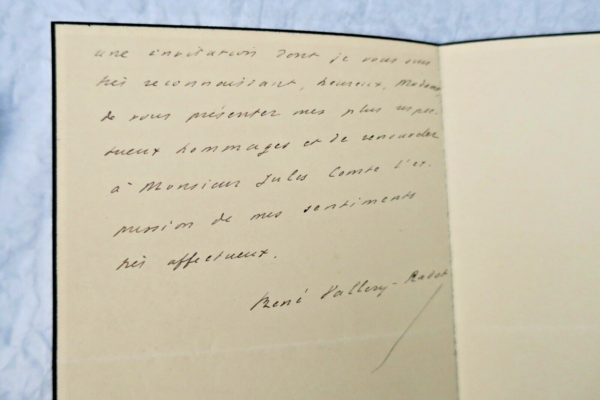 une invitation dont je vous suis
très reconnaissant, heureux, Madame,
de vous présenter mes plus respec-
tueux hommages et de renouveler
à Monsieur Jules Comte l'ex-
pression de mes sentiments
très affectueux.
René Vallery-Radot